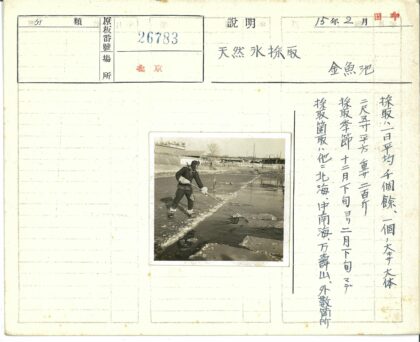 分類
原板番號 26783
場所 北京
説明
15年2月
天然氷採取
金魚池
採取ハ一日平均千個餘、一個ノ大サ大体
二尺五寸平方 重サ二百斤
採取季節 十二月下旬ヨリ二月下旬マデ
採取箇所ハ他ニ北海、中南海、万壽山、外数箇所